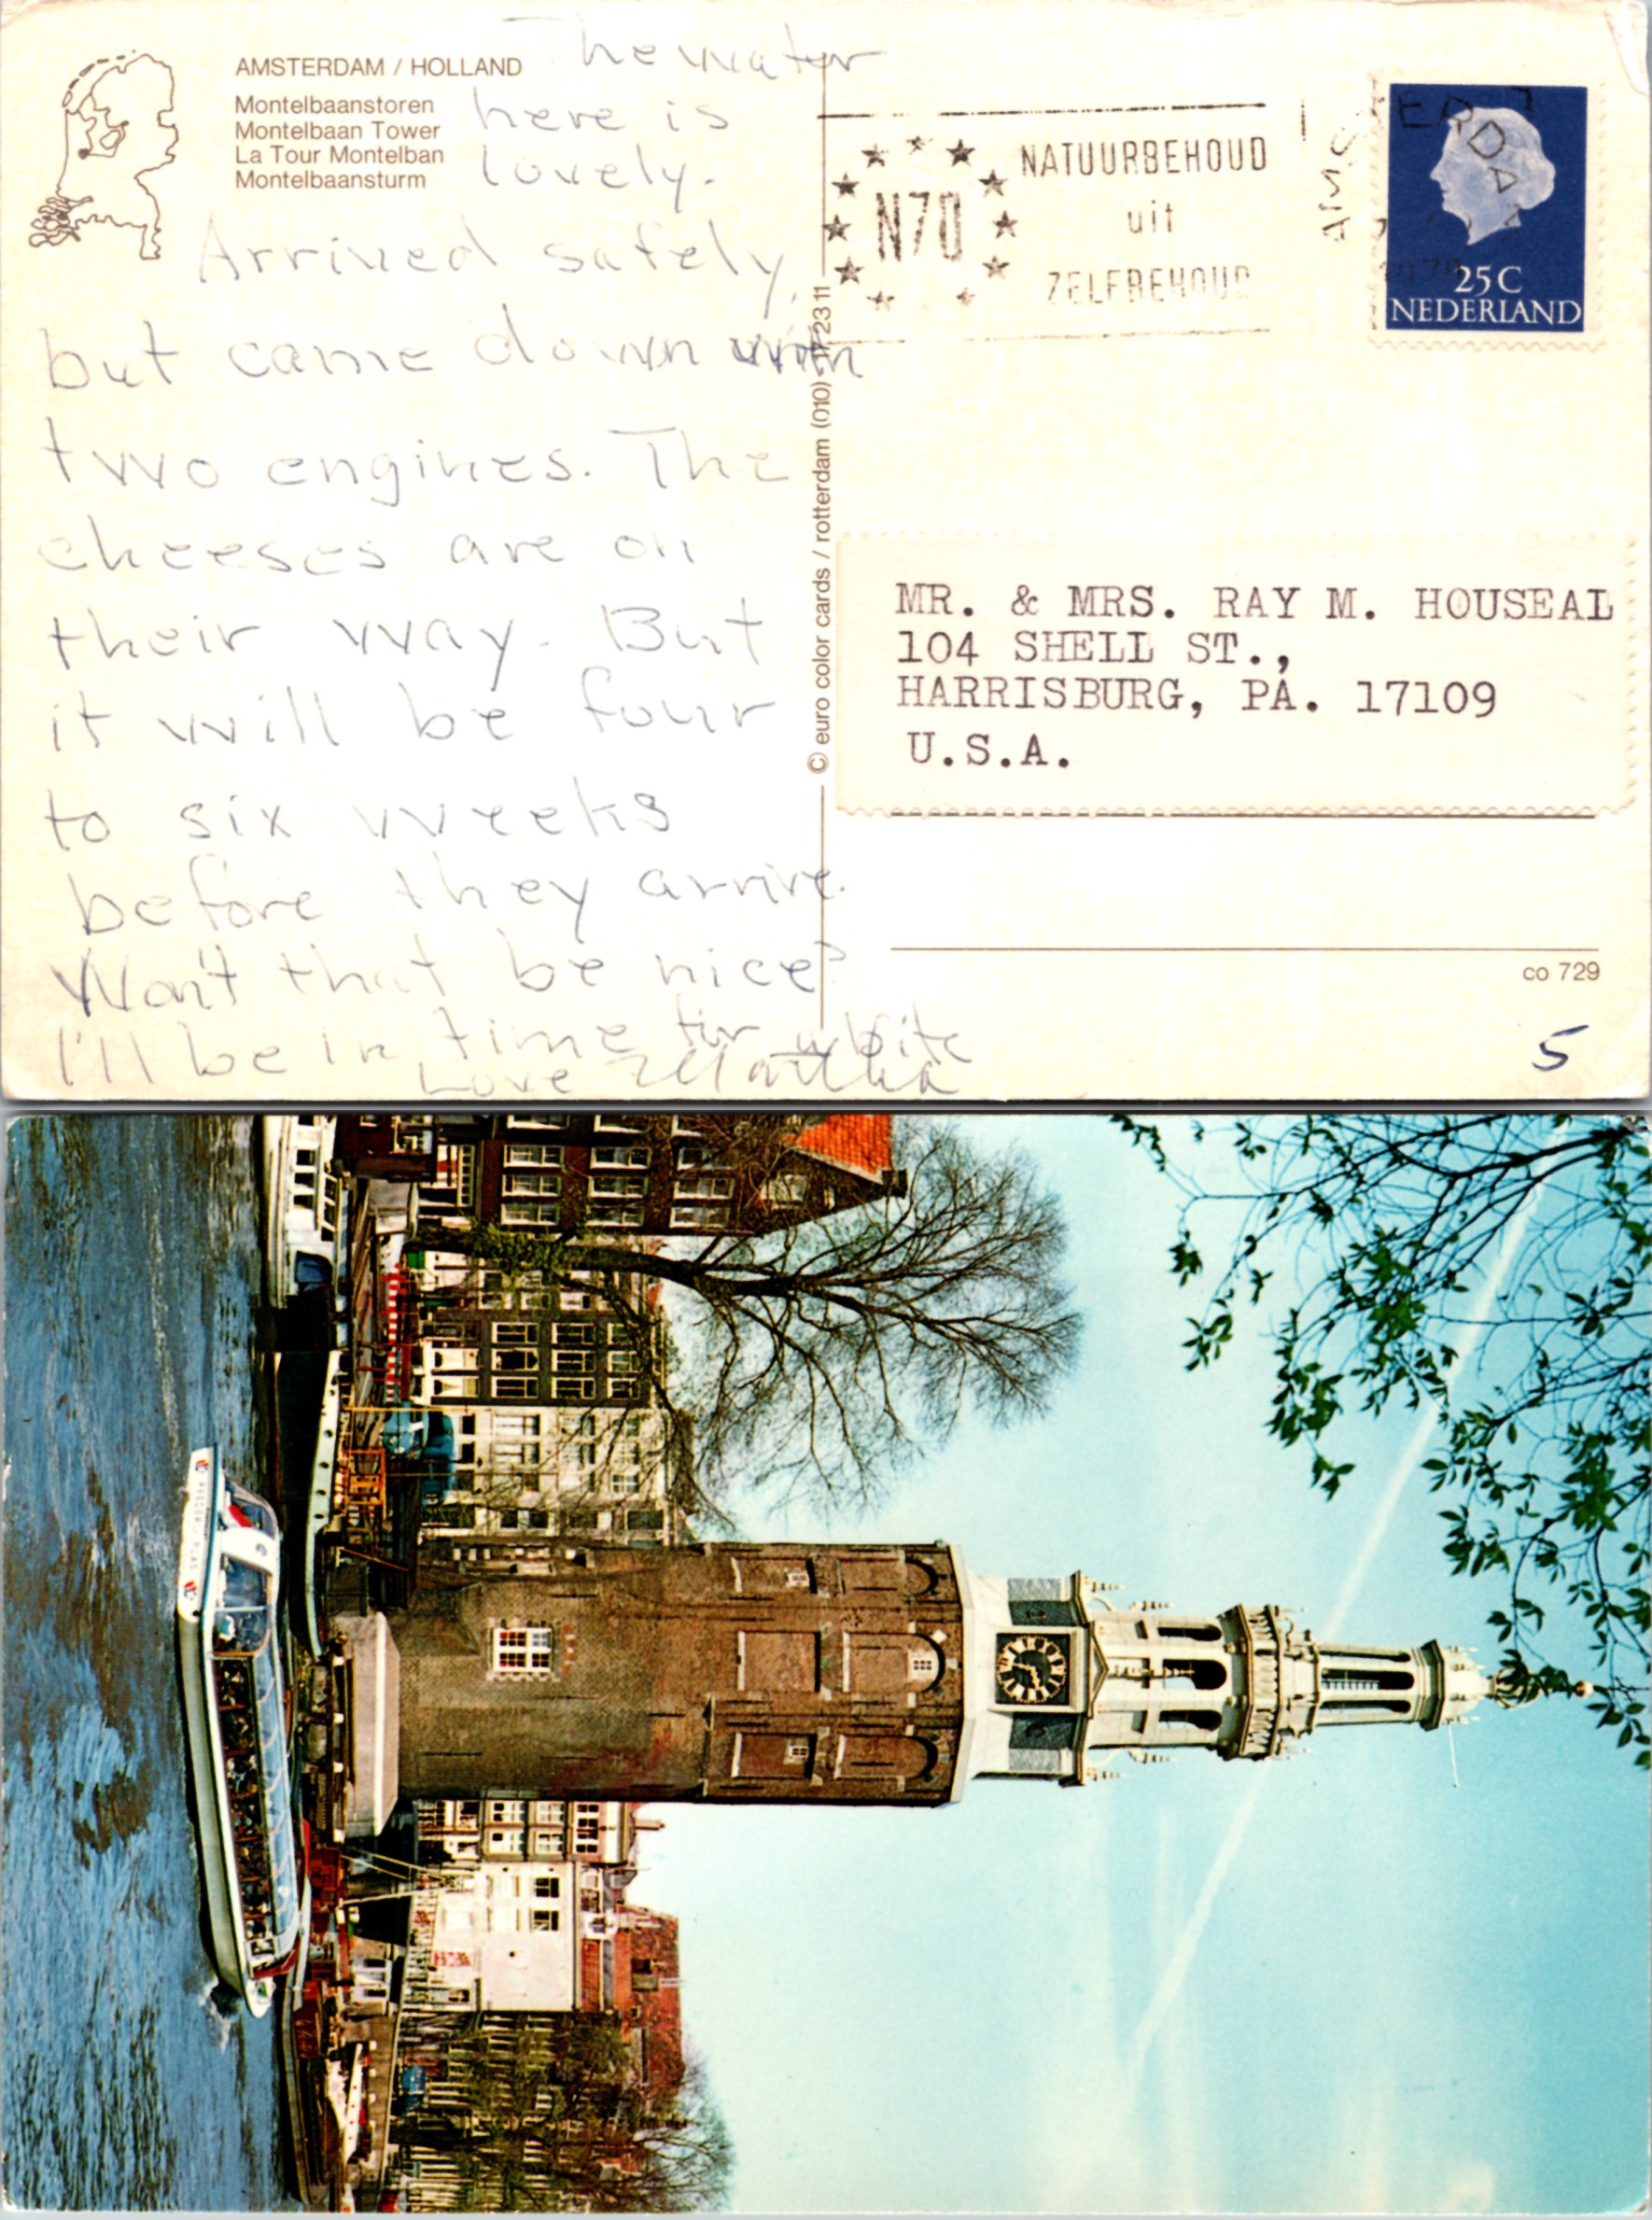 AMSTERDAM / HOLLAND
Montelbaanstoren
Montelbaan Tower
La Tour Montelban
Montelbaansturm
The water
here is
lovely.
Arrived safely,
but came down with
two engines. The
cheeses are on
their way. But
it will be four
to six weeks
before they arrive.
Won't that be nice?
I'll be in time for white
Love Martha
© euro color cards / rotterdam (010)
23 11
N70
NATUURBEHOUD
uit
ZELFBEHOUD
AMSTERDAM
25 C
NEDERLAND
MR. & MRS. RAY M. HOUSEAL
104 SHELL ST.,
HARRISBURG, PA. 17109
U.S.A.
co 729
5